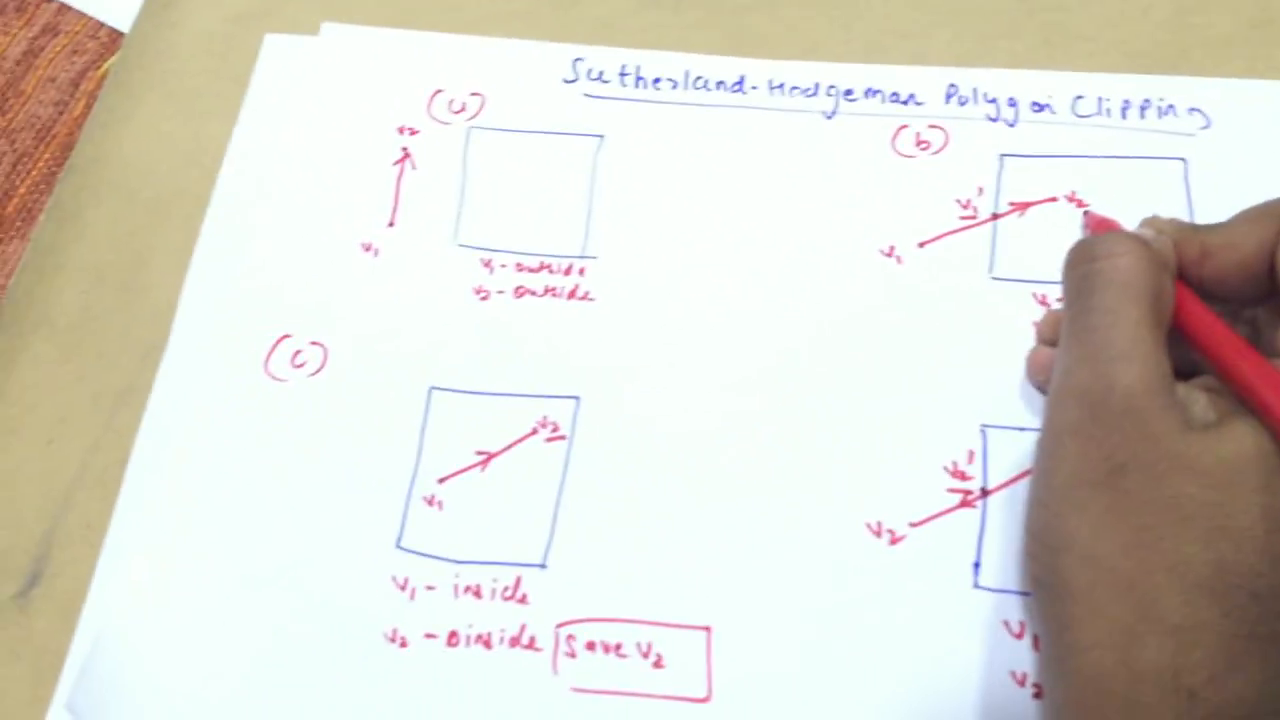 Sutherland-Hodgeman Polygon Clipping
(a)
v2
v1
v1 - outside
v2 - outside
(b)
v1'
v2
v1
(c)
v2
v1
v1 - inside
v2 - inside
Save v2
v2'
v2
v1
v2